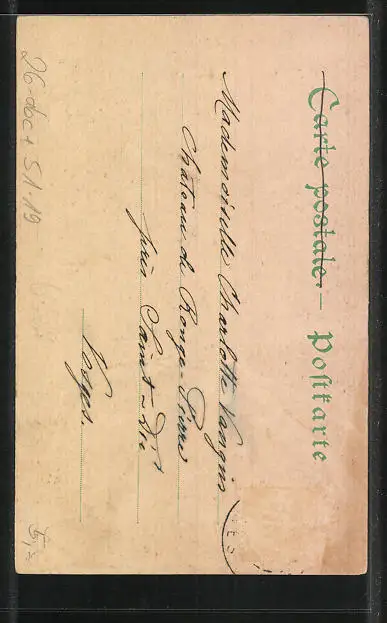 Carte postale. — Postkarte
Mademoiselle Charlotte
Château de Rouge-Pierre
près Saint-Dié
Vosges.